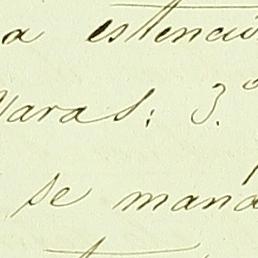 a estenci
varas: 3.º
se mana